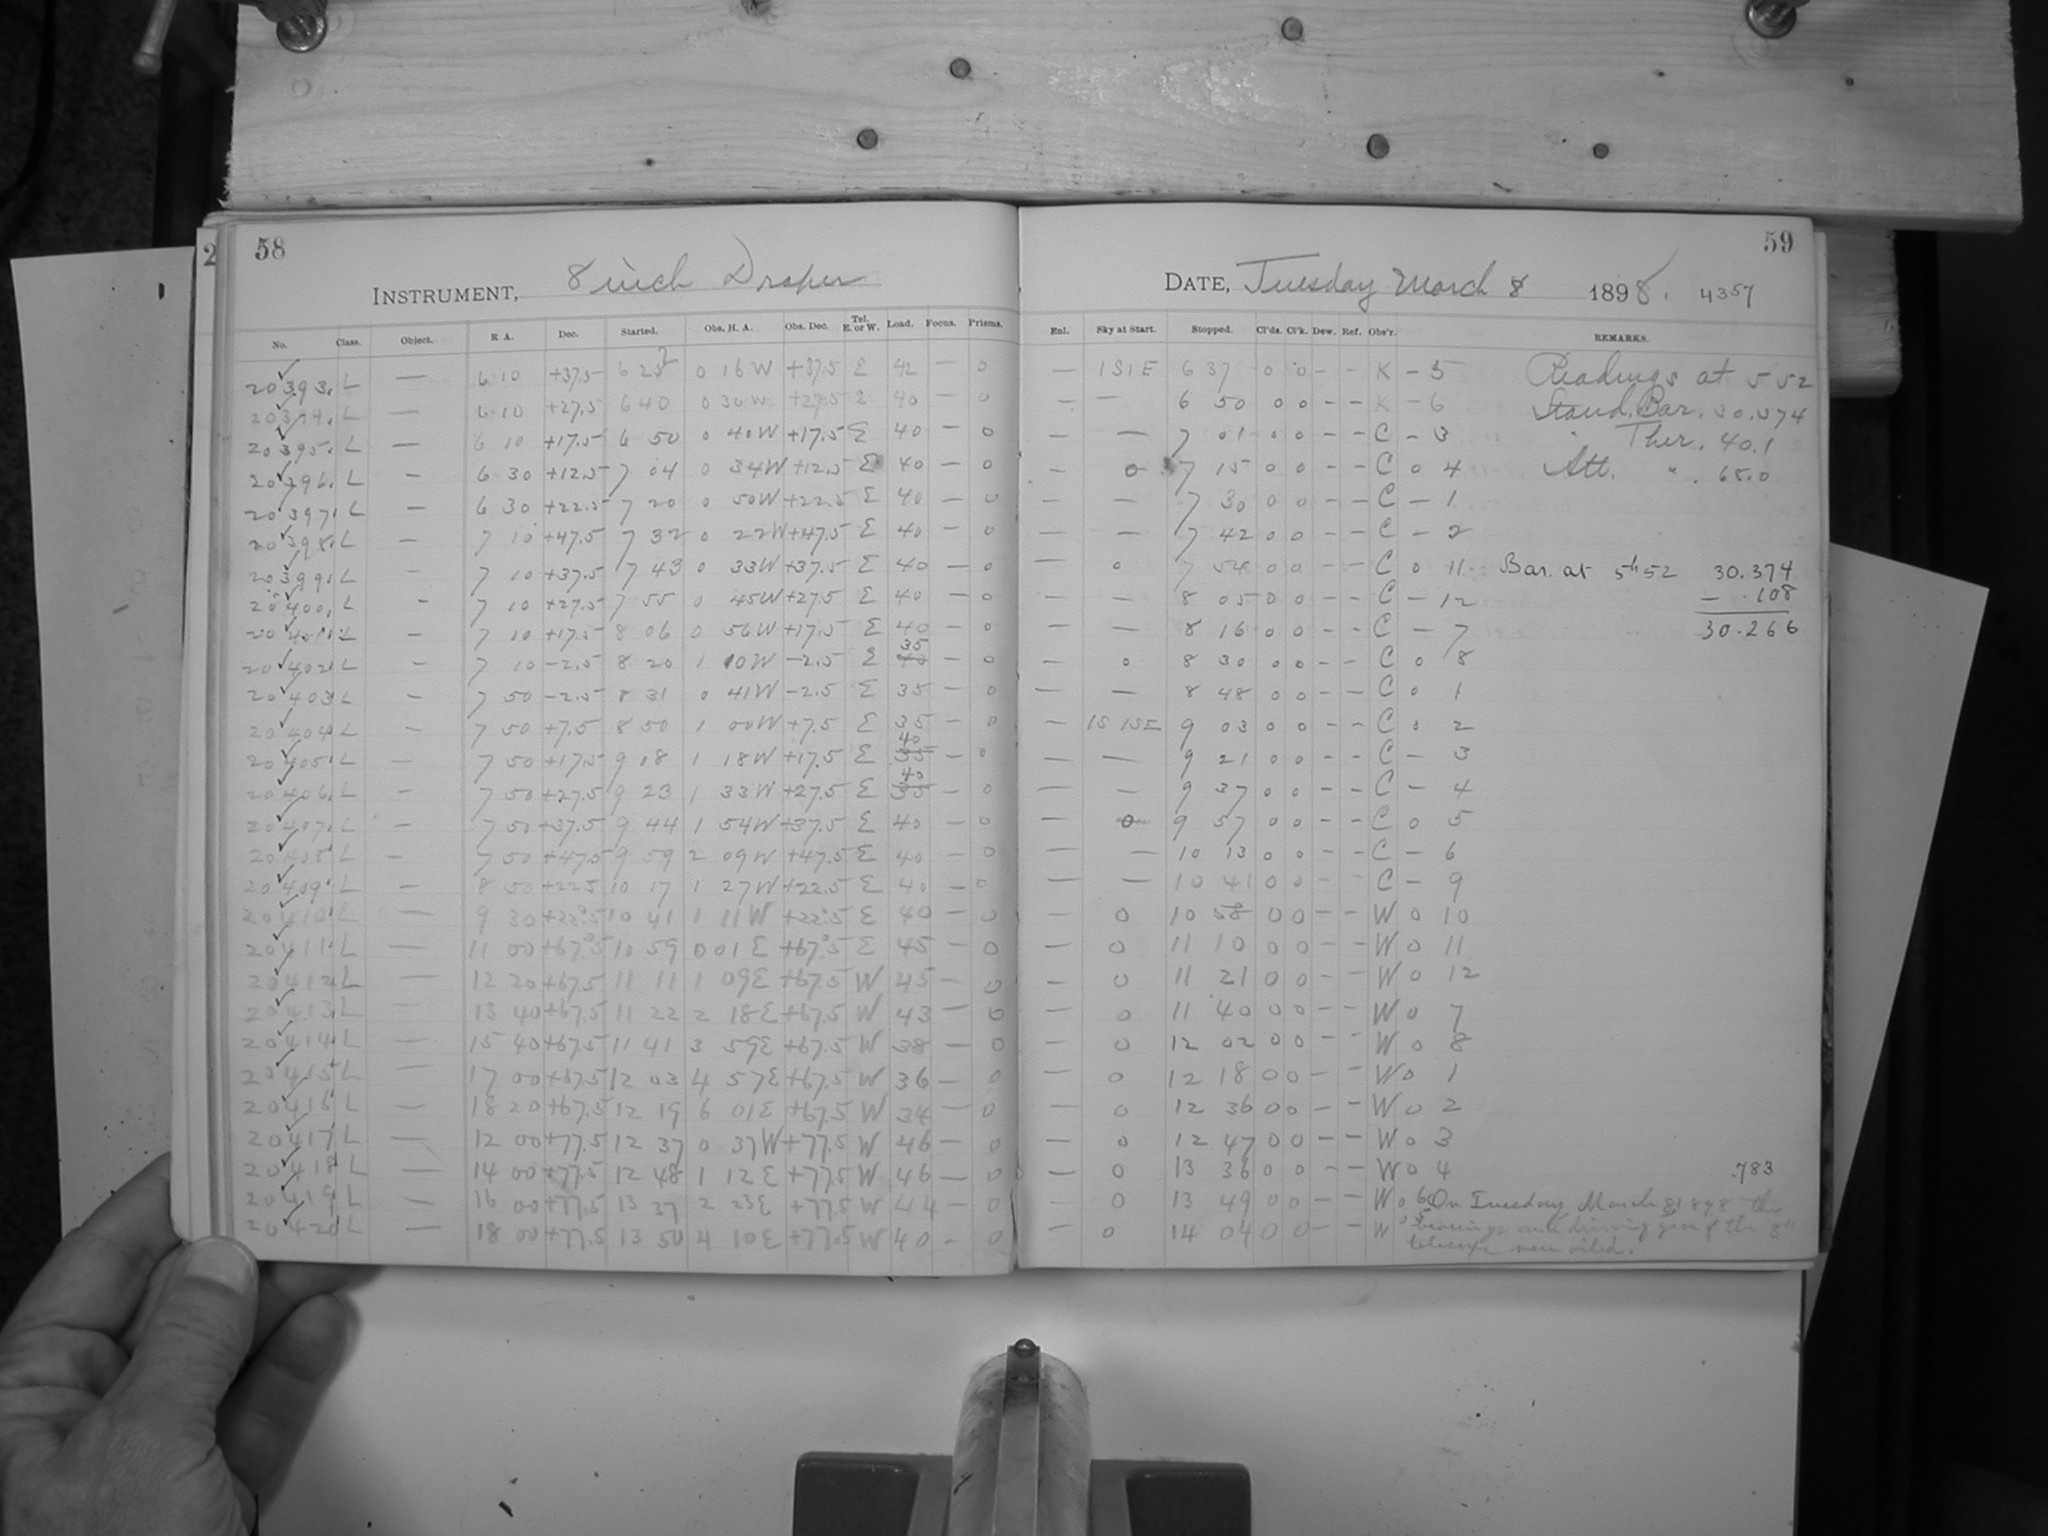 2
58
INSTRUMENT, 8 inch Draper
No. Class. Object. R. A. Dec. Started. Obs. H. A. Obs. Dec. Tel. E. or W. Load. Focus. Prisms.
20393. L — 6 10 +37.5 6 25 0 16W +37.5 E 42 — 0
20394. L — 6 10 +27.5 6 40 0 30W +27.5 E 40 — 0
20395. L — 6 10 +17.5 6 50 0 40W +17.5 E 40 — 0
20396. L — 6 30 +12.5 7 04 0 34W +12.5 E 40 — 0
20397. L — 6 30 +22.5 7 20 0 50W +22.5 E 40 — 0
20398. L — 7 10 +47.5 7 32 0 22W +47.5 E 40 — 0
20399. L — 7 10 +37.5 7 43 0 33W +37.5 E 40 — 0
20400. L — 7 10 +27.5 7 55 0 45W +27.5 E 40 — 0
20401. L — 7 10 +17.5 8 06 0 56W +17.5 E 40 — 0
20402. L — 7 10 -2.5 8 20 1 10W -2.5 E 35 — 0
20403 L — 7 50 -2.5 8 31 0 41W -2.5 E 35 — 0
20404 L — 7 50 +7.5 8 50 1 00W +7.5 E 35 — 0
20405. L — 7 50 +17.5 9 08 1 18W +17.5 E 40 35 — 0
20406. L — 7 50 +27.5 9 23 1 33W +27.5 E 40 35 — 0
20407. L — 7 50 +37.5 9 44 1 54W +37.5 E 40 — 0
20408. L — 7 50 +47.5 9 59 2 09W +47.5 E 40 — 0
20409. L — 8 50 +22.5 10 17 1 27W +22.5 E 40 — 0
20410. L — 9 30 +22.5 10 41 1 11W +22.5 E 40 — 0
20411. L — 11 00 +67.5 10 59 0 01E +67.5 E 45 — 0
20412 L — 12 20 +67.5 11 11 1 09E +67.5 W 45 — 0
20413 L — 13 40 +67.5 11 22 2 18E +67.5 W 43 — 0
20414 L — 15 40 +67.5 11 41 3 59E +67.5 W 38 — 0
20415 L — 17 00 +67.5 12 03 4 57E +67.5 W 36 — 0
20416 L — 18 20 +67.5 12 19 6 01E +67.5 W 34 — 0
20417 L — 12 00 +77.5 12 37 0 37W +77.5 W 46 — 0
20418 L — 14 00 +77.5 12 48 1 12E +77.5 W 46 — 0
20419 L — 16 00 +77.5 13 37 2 23E +77.5 W 44 — 0
20420 L — 18 00 +77.5 13 50 4 10E +77.5 W 40 — 0
59
DATE, Tuesday March 8 1898. 4357
Enl. Sky at Start. Stopped. Cl'ds. Cl'k. Dew. Ref. Obs'r. REMARKS.
— 1S1E 6 37 0 0 — — K — 5 Readings at 5 52
— — 6 50 0 0 — — K — 6 Stand. Bar. 30.374
— — 7 01 0 0 — — C — 3 Ther. 40.1
— 0 7 15 0 0 — — C 0 4 Att. " . 65.0
— — 7 30 0 0 — — C — 1
— — 7 42 0 0 — — C — 2
— 0 7 54 0 0 — — C 0 11 Bar. at 5h52 30.374
— — 8 05 0 0 — — C — 12 — .108
— — 8 16 0 0 — — C — 7 30.266
— 0 8 30 0 0 — — C 0 8
— — 8 48 0 0 — — C 0 1
— 1S 1SE 9 03 0 0 — — C 0 2
— — 9 21 0 0 — — C — 3
— — 9 37 0 0 — — C — 4
— 0 9 57 0 0 — — C 0 5
— — 10 13 0 0 — — C — 6
— — 10 41 0 0 — — C — 9
— 0 10 58 0 0 — — W 0 10
— 0 11 10 0 0 — — W 0 11
— 0 11 21 0 0 — — W 0 12
— 0 11 40 0 0 — — W 0 7
— 0 12 02 0 0 — — W 0 8
— 0 12 18 0 0 — — W 0 1
— 0 12 36 0 0 — — W 0 2
— 0 12 47 0 0 — — W 0 3
— 0 13 36 0 0 — — W 0 4 .783
— 0 13 49 0 0 — — W 0 6 On Tuesday March 8 1898 the
— 0 14 04 0 0 — — W 0 5 bearings and driving gear of the 8"
telescope were oiled.